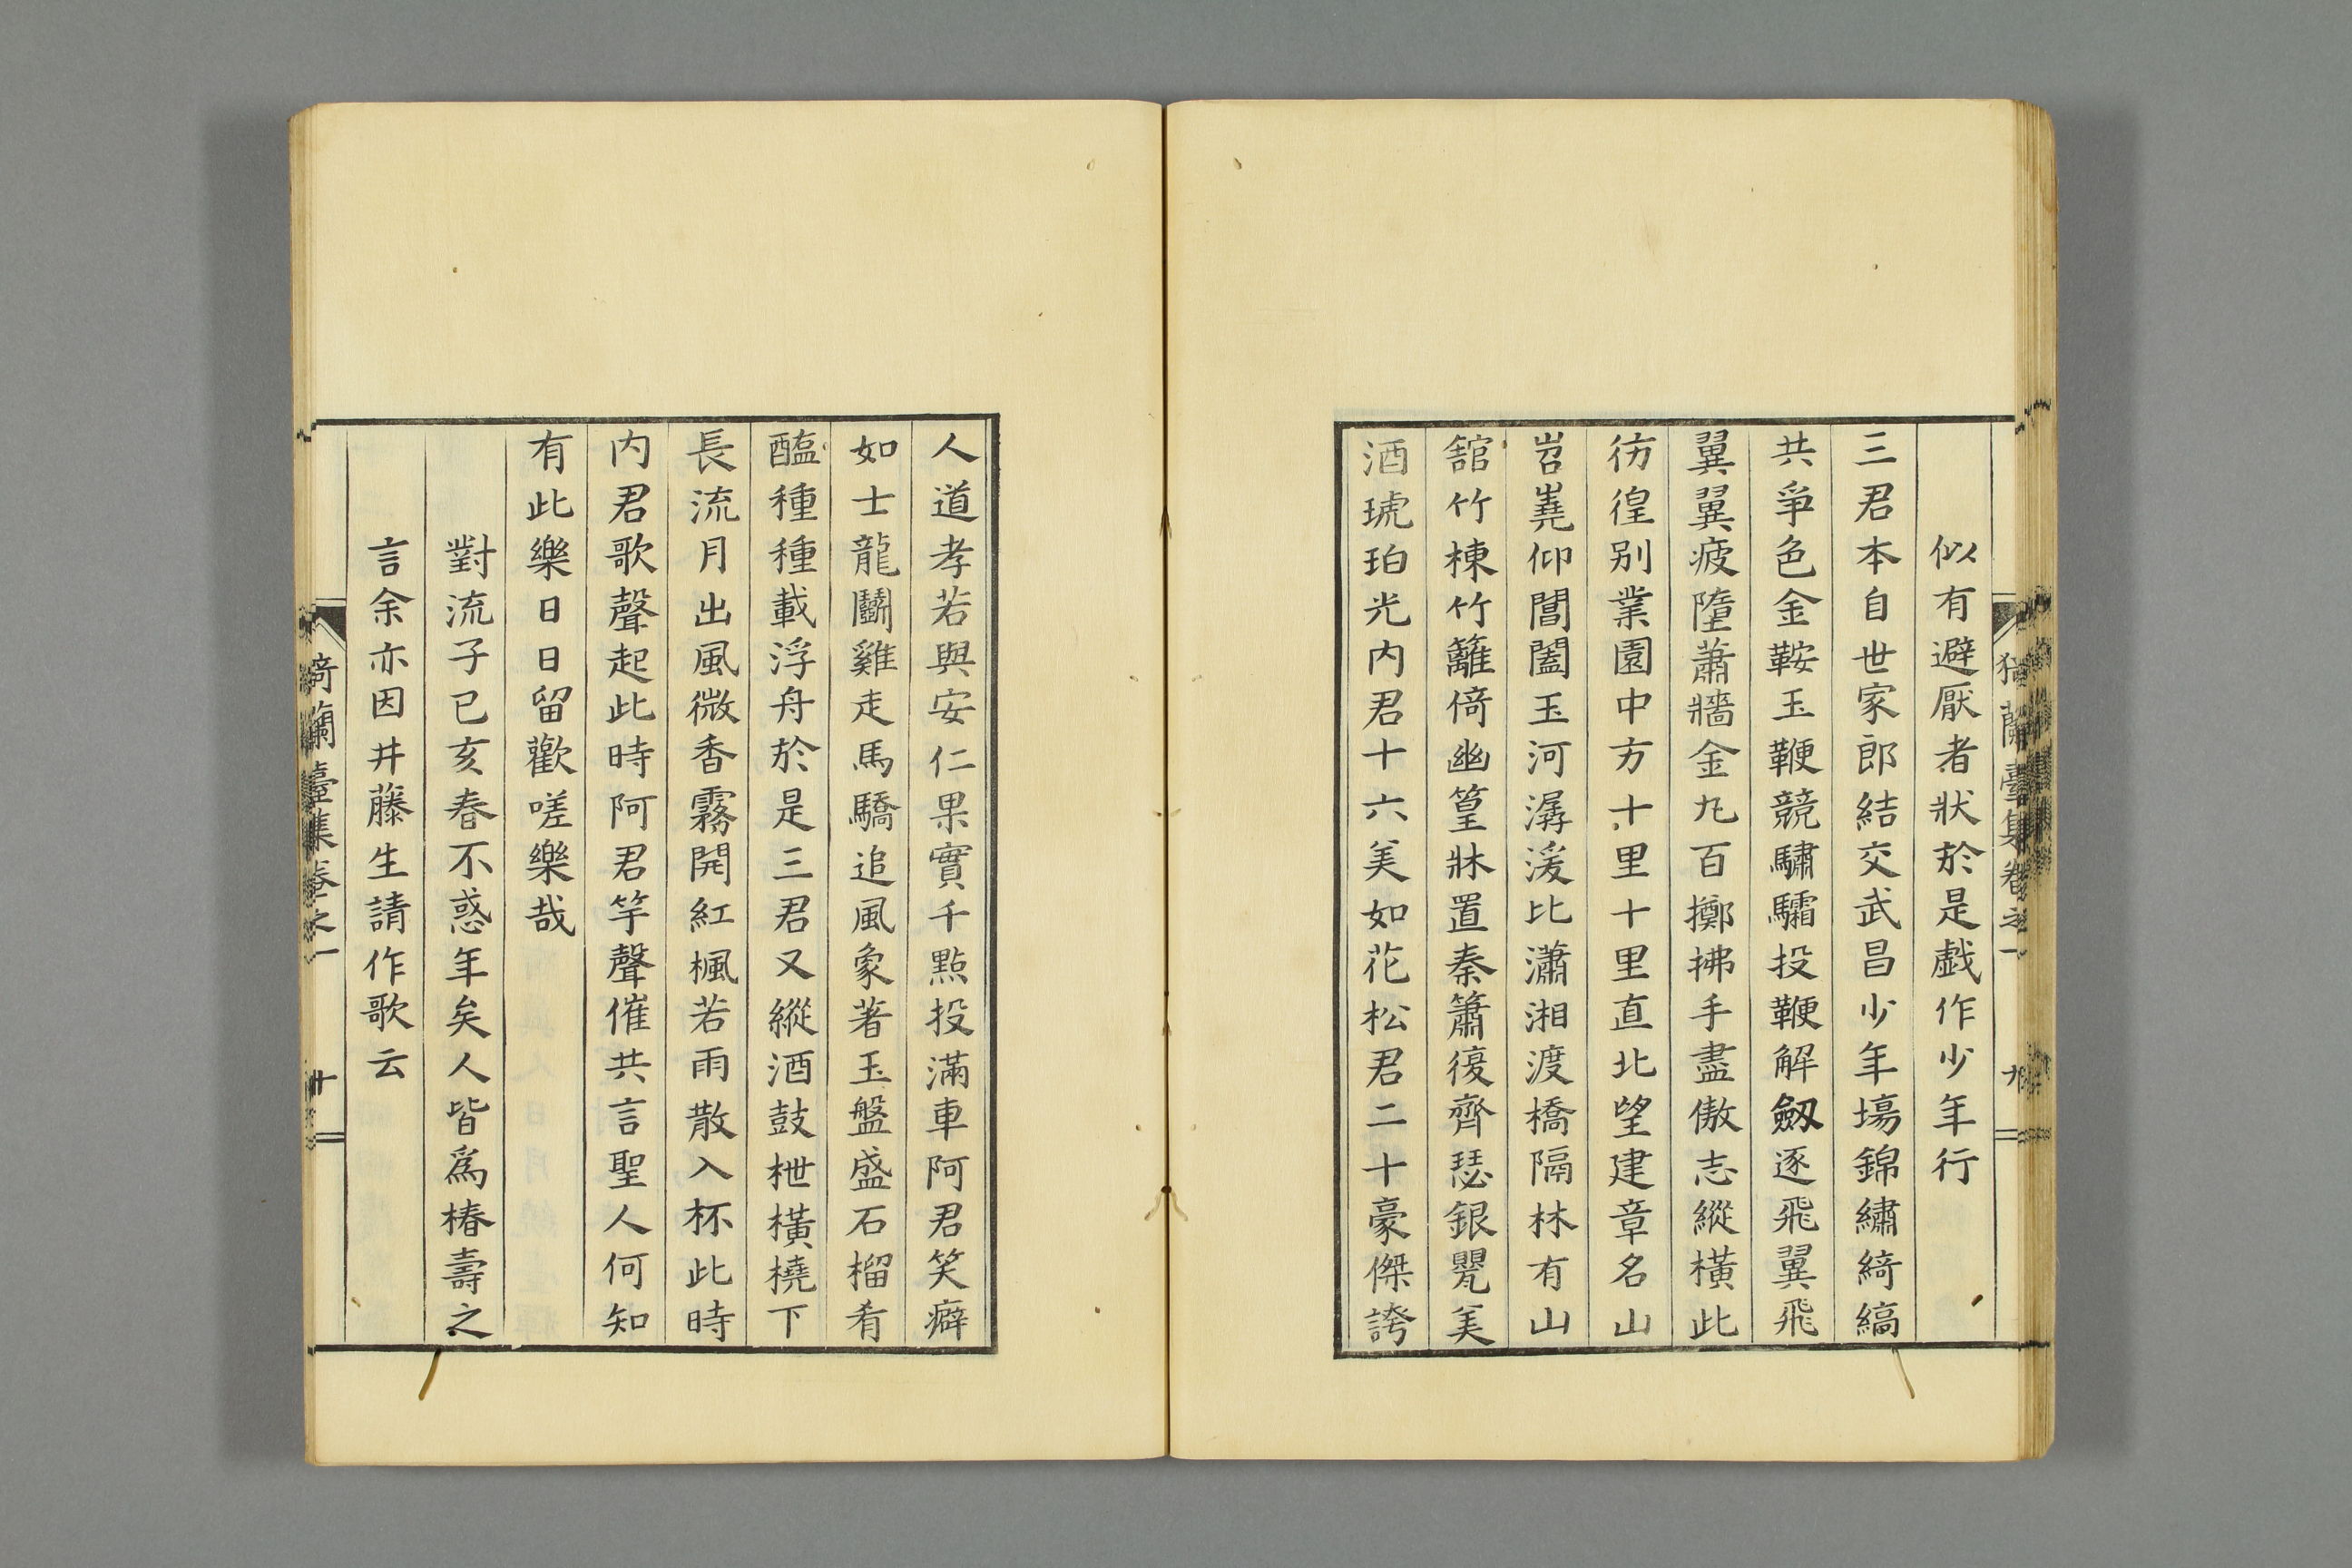 似有避厭者狀於是戯作少年行
三君本自世家郎結交武昌少年塲錦繡綺縞
共爭色金鞍玉鞭競驌驦投鞭解劔逐飛翼飛
翼翼疲墮蕭牆金丸百擲拂手盡傲志縱橫此
彷徨别業園中方十里十里直北望建章名山
岧嶤仰閶闔玉河潺湲比瀟湘渡橋隔林有山
舘竹棟竹籬倚幽篁牀置秦簫復齊瑟銀甖美
酒琥珀光内君十六美如花松君二十豪傑誇
猗蘭臺集卷之一
九
人道孝若與安仁果實千點投滿車阿君笑癖
如士龍鬬雞走馬驕追風象著玉盤盛石榴肴
醢種種載浮舟於是三君又縱酒鼓枻橫橈下
長流月出風微香霧開紅楓若雨散入杯此時
内君歌聲起此時阿君竽聲催共言聖人何知
有此樂日日留歡嗟樂哉
對流子已亥春不惑年矣人皆爲椿壽之
言余亦因井藤生請作歌云
猗蘭臺集卷之一
十